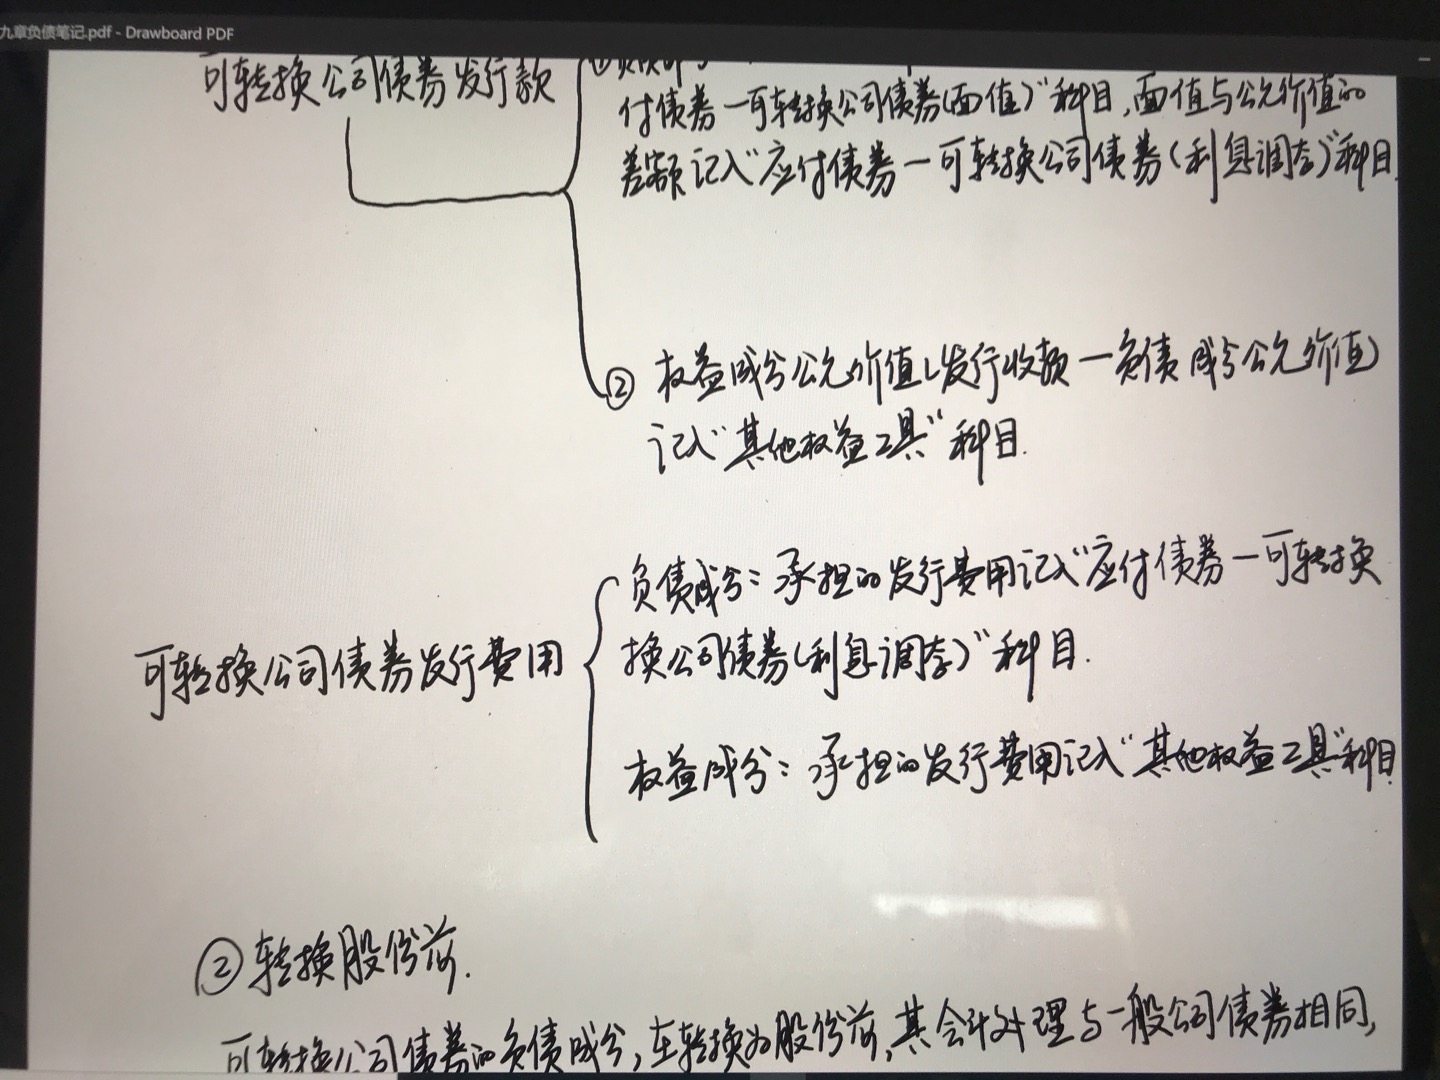 九章负债笔记.pdf - Drawboard PDF
可转换公司债券发行款
付债券一可转换公司债券(面值)"科目,面值与公允价值的
差额记入"应付债券一可转换公司债券(利息调整)"科目.
② 权益成分公允价值(发行收款一负债成分公允价值)
记入"其他权益工具"科目.
负债成分:承担的发行费用记入"应付债券一可转换
换公司债券(利息调整)"科目.
可转换公司债券发行费用
权益成分:承担的发行费用记入"其他权益工具"科目.
②转换股份前.
可转换公司债券的负债成分,在转换为股份前,其会计处理与一般公司债券相同,